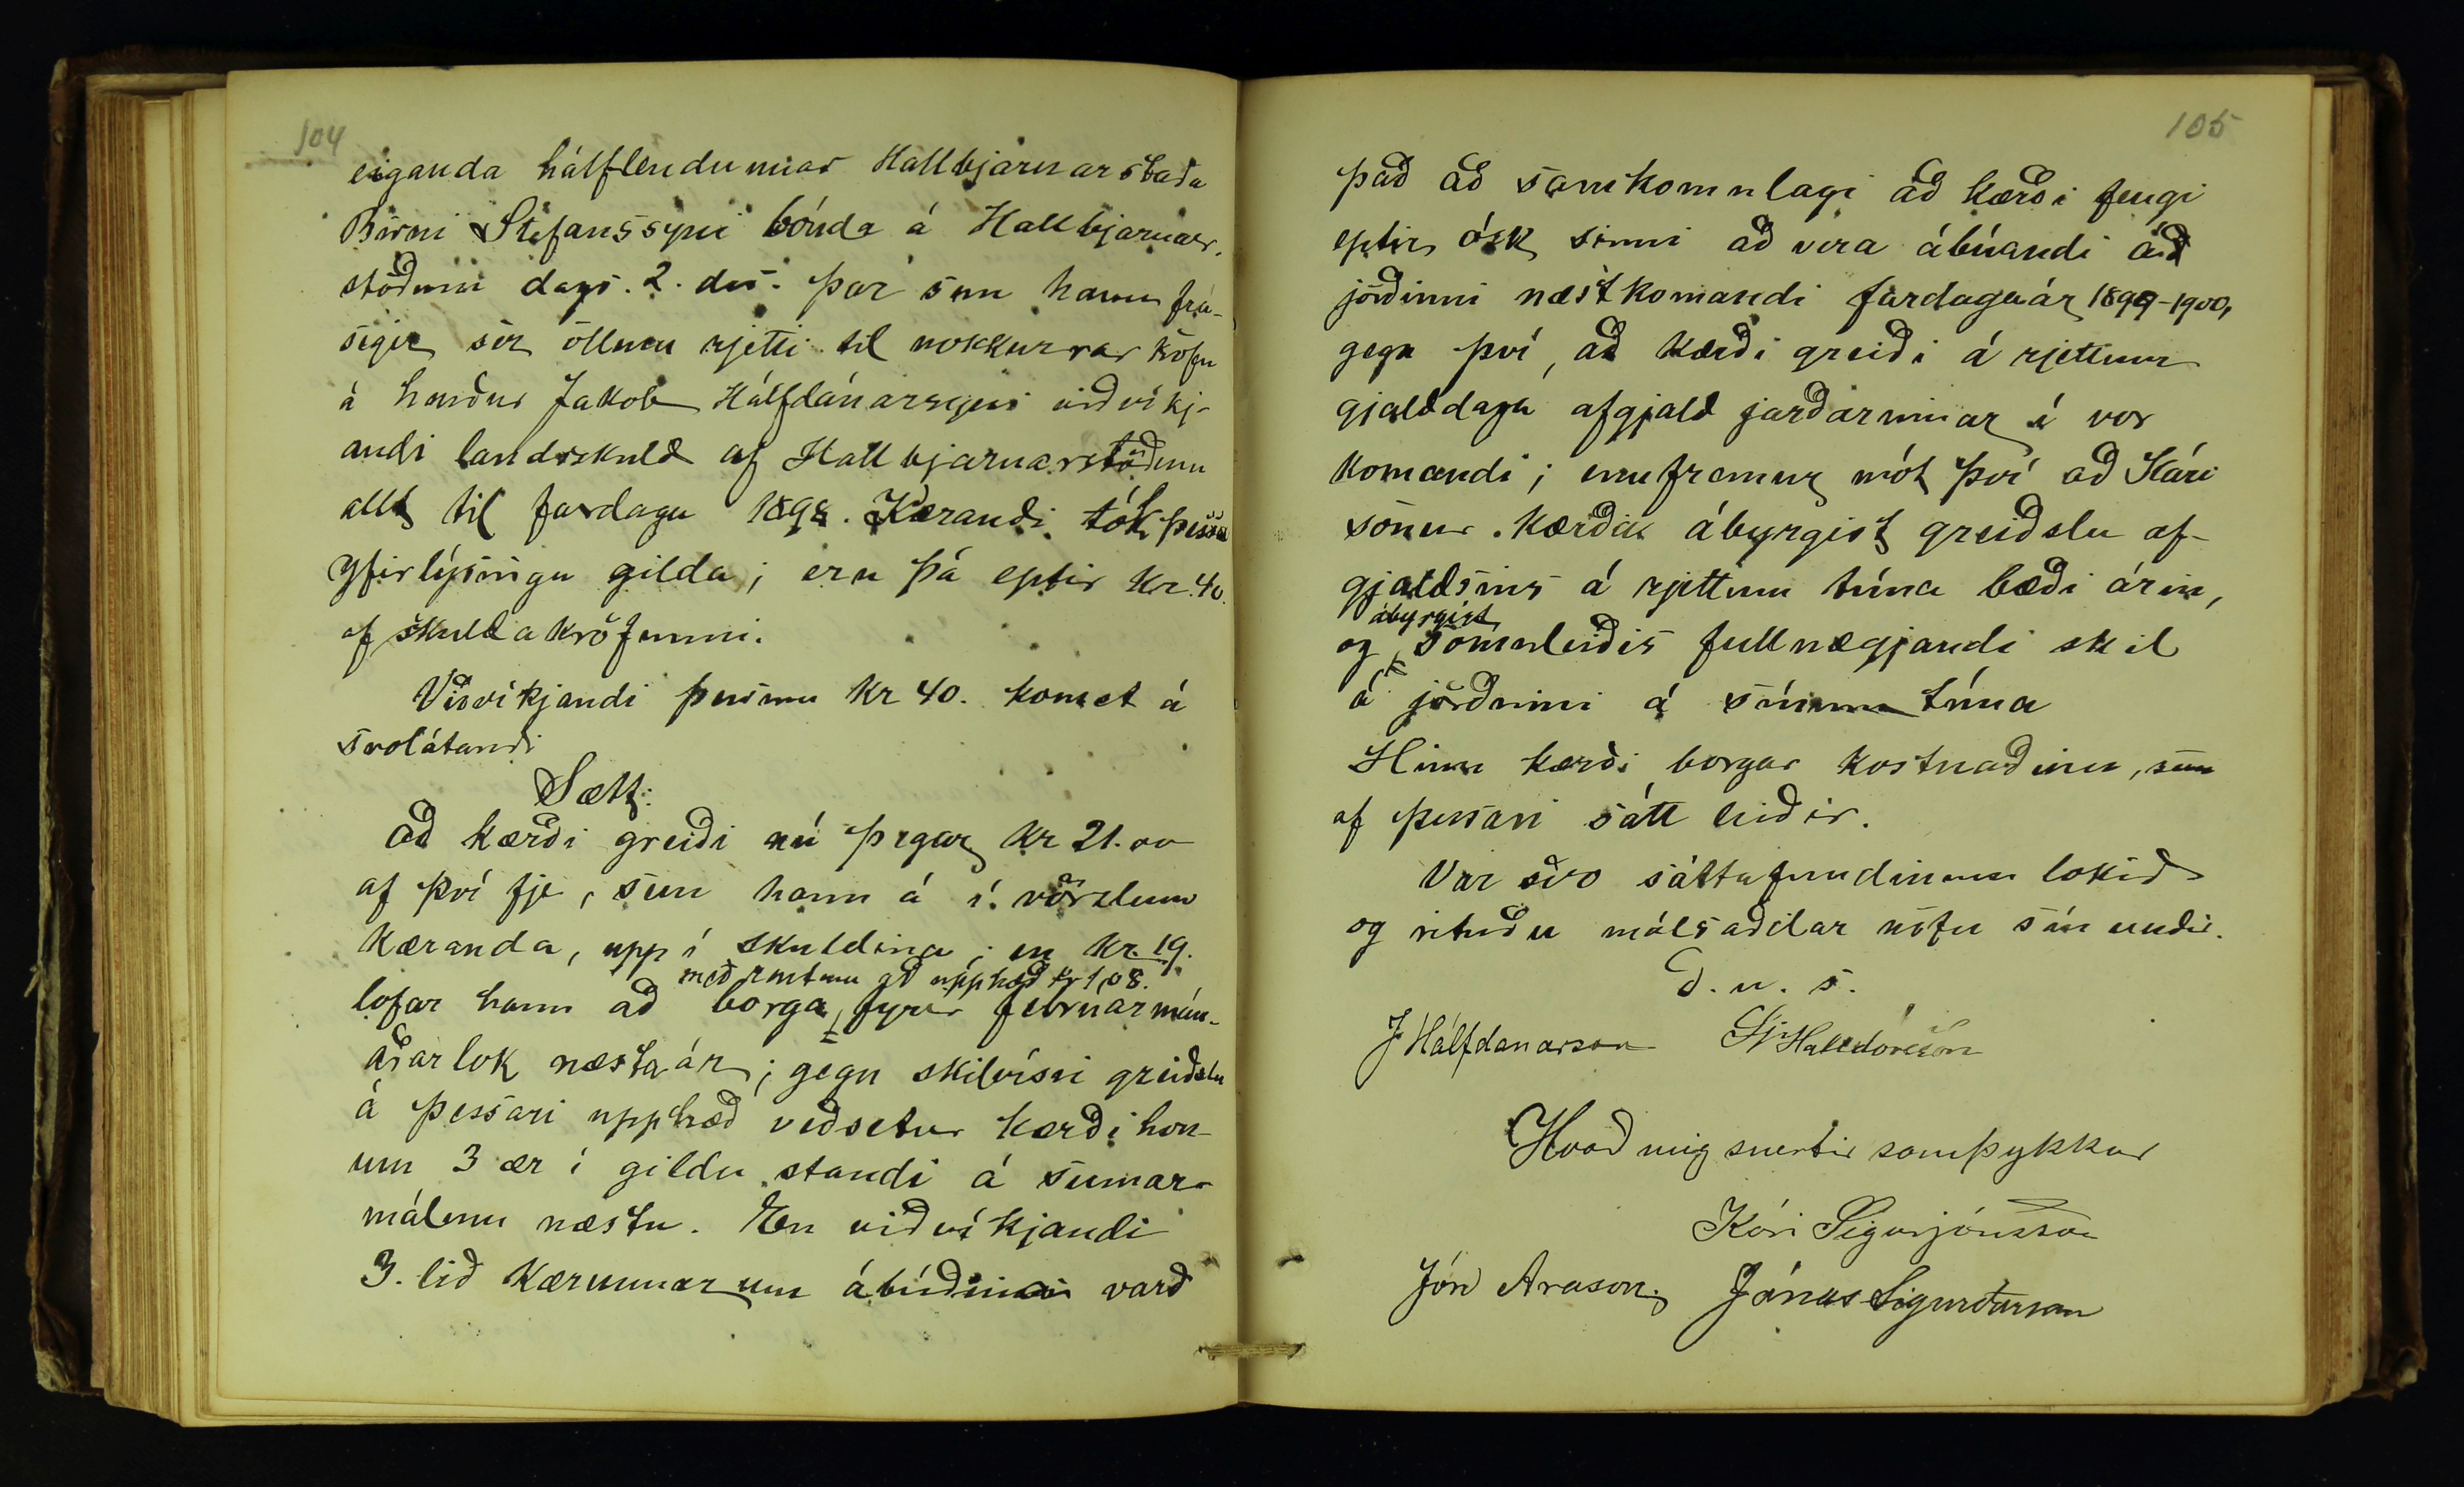 104
eiganda hálflendunnar Hallbjarnarstaða
Birni Stefánssyni bónda á Hallbjarnar-
stöðum dags. 2. des. þar sem hann frá-
segir sér öllum rjetti til nokkurrar kröfu
á hendur Jakob Hálfdánarsyni viðvíkj-
andi landsskuld af Hallbjarnarstöðum
allt til fardaga 1898. Kærandi tók þessa
yfirlýsingu gilda; eru þá eptir kr. 40.
af skuldakröfunni.
Viðvíkjandi þessum kr 40. komst á
svolátandi
Sætt:
að kærði greiði nú þegar kr 21.00
af því fje, sem hann á í vörzlum
kæranda, upp í skuldina; en kr. 19.
með rentum að upphæð kr 1,08.
lofar hann að borga fyrir febrúarmán-
aðarlok næsta ár; gegn skilvísri greiðslu
á þessari upphæð veðsetur kærði hon-
um 3 ær í gildu standi á sumar-
málum næstu. En viðvíkjandi
3. lið kærunnar um ábúðina varð
105
það að samkomulagi að kærði fengi
eptir ósk sinni að vera ábúandi að
jörðinni næstkomandi fardagaár 1899-1900,
gegn því, að kærði greiði á rjettum
gjalddaga afgjald jarðarinnar í vor
komandi; ennfremur mót því að Kári
sonur kærða ábyrgist greiðslu af-
gjaldsins á rjettum tíma bæði árin,
ábyrgist
og sömuleiðis fullnægjandi skil
á jörðinni á sínum tíma
Hinn kærði borgar kostnaðinn, sem
af þessari sátt leiðir.
Var svo sáttafundinum lokið
og rituðu málsaðilar nöfn sín undir.
D. u. s.
J Hálfdanarson Sj. Halldórsson
Hvað mig snertir samþykkur
Kári Sigurjónsson
Jón Arason. Jónas Sigurðarson